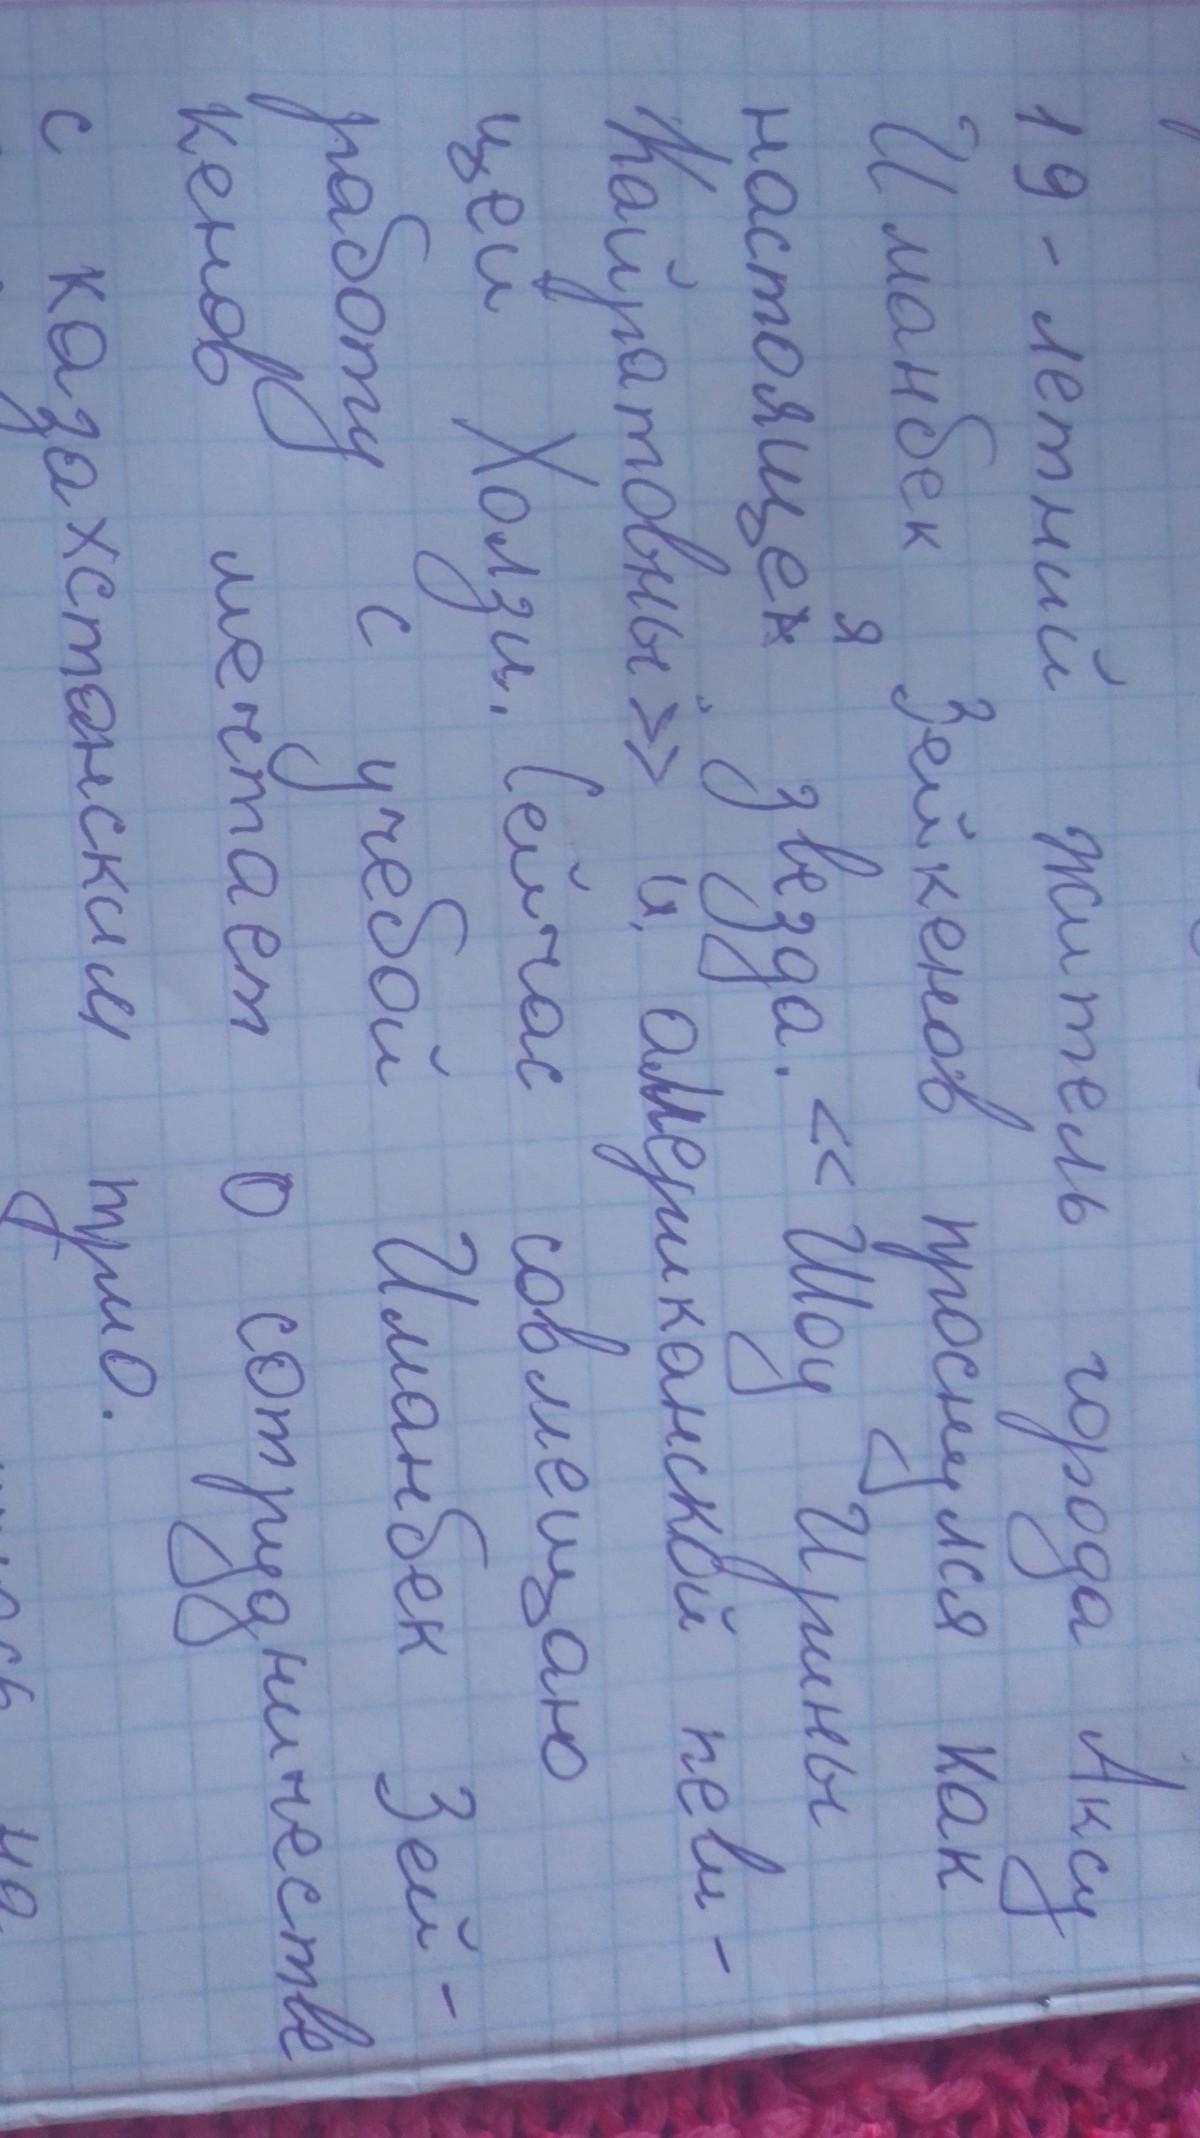 19-летний житель города Аксу
Иманбек Зейкенов проснулся как
настоящея звезда. «Шоу Ирины
Кайратовны» и американской певи-
цей Холзи. Сейчас совмещаю
работу с учебой Иманбек Зей-
кенов мечтает о сотрудничестве
с казахстанским трио.
на